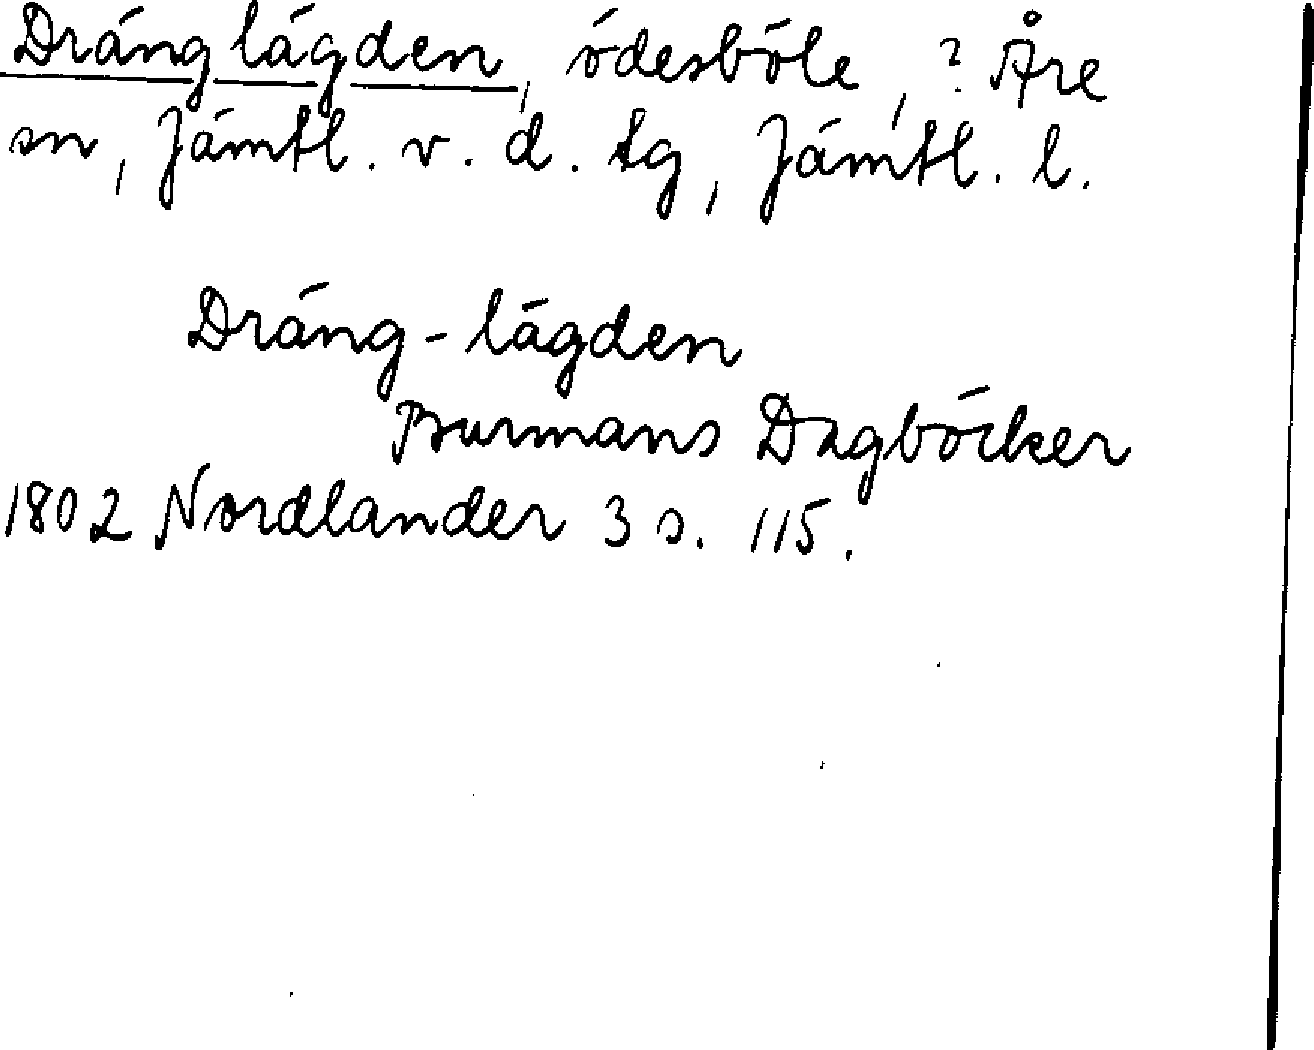 Dränglägden, ödesböle, ? Åre
sn, Jämtl. v. d. tg, Jämtl. l.
Dräng-lägden
Burmans Dagböcker
1802 Nordlander 3 s. 115.